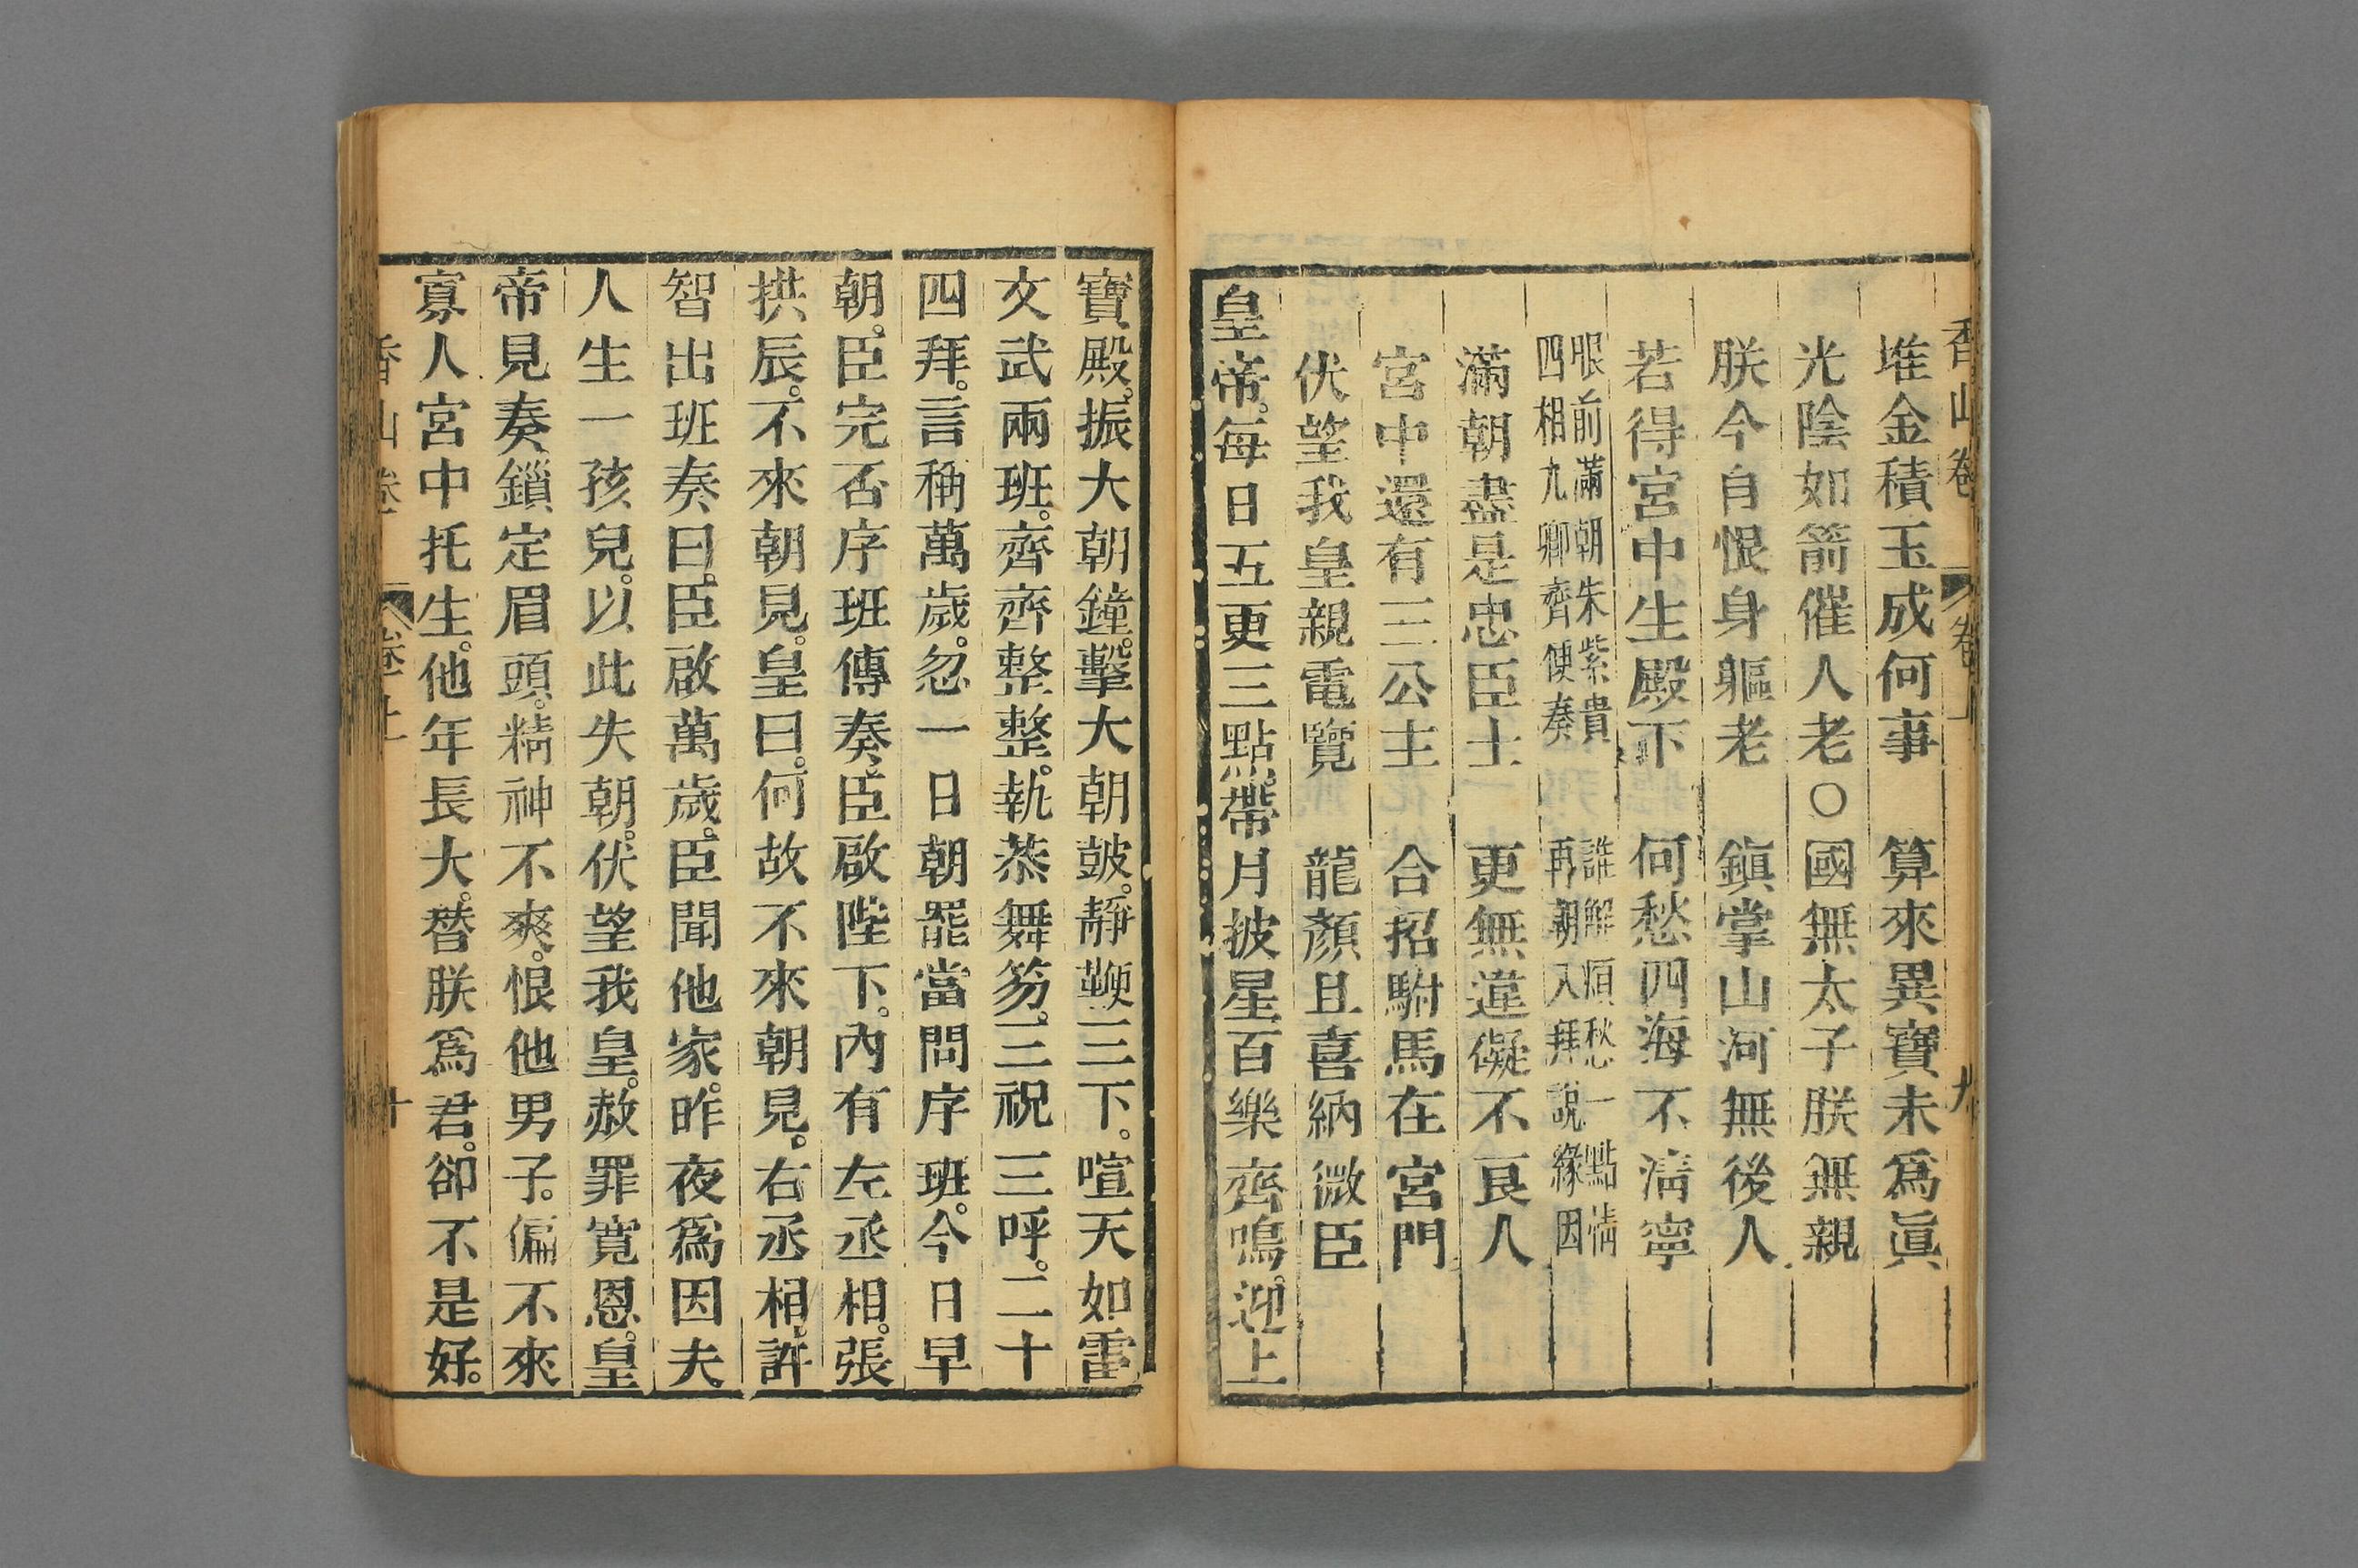 香山卷 卷上 九
堆金積玉成何事 算來異寶未爲眞
光陰如箭催人老○國無太子朕無親
朕今自恨身軀老 鎮掌山河無後人
若得宮中生殿下 何愁四海不淸寧
眼前滿朝朱紫貴 誰解煩愁一點情
四相九卿齊便奏 再朝入拜說緣因
滿朝盡是忠臣士 更無違礙不良人
宮中還有三公主 合招駙馬在宮門
伏望我皇親電覽 龍顏且喜納微臣
皇帝。每日五更三點。帶月披星。百樂齊鳴。迎上
寶殿。振大朝鐘。擊大朝皷。靜鞭三下。喧天如雷
文武兩班。齊齊整整。執恭舞笏。三祝三呼。二十
四拜。言稱萬歲。忽一日朝罷。當問序班。今日早
朝。臣完否。序班傳奏。臣啟陛下。內有左丞相。張
拱辰。不來朝見。皇曰。何故不來朝見。右丞相。許
智出班奏曰。臣啟萬歲。臣聞他家。昨夜爲因夫
人生一孩兒。以此失朝。伏望我皇。赦罪寬恩。皇
帝見奏。鎖定眉頭。精神不爽。恨他男子。偏不來
寡人宮中托生。他年長大。替朕爲君。卻不是好。
香山卷 卷上 十